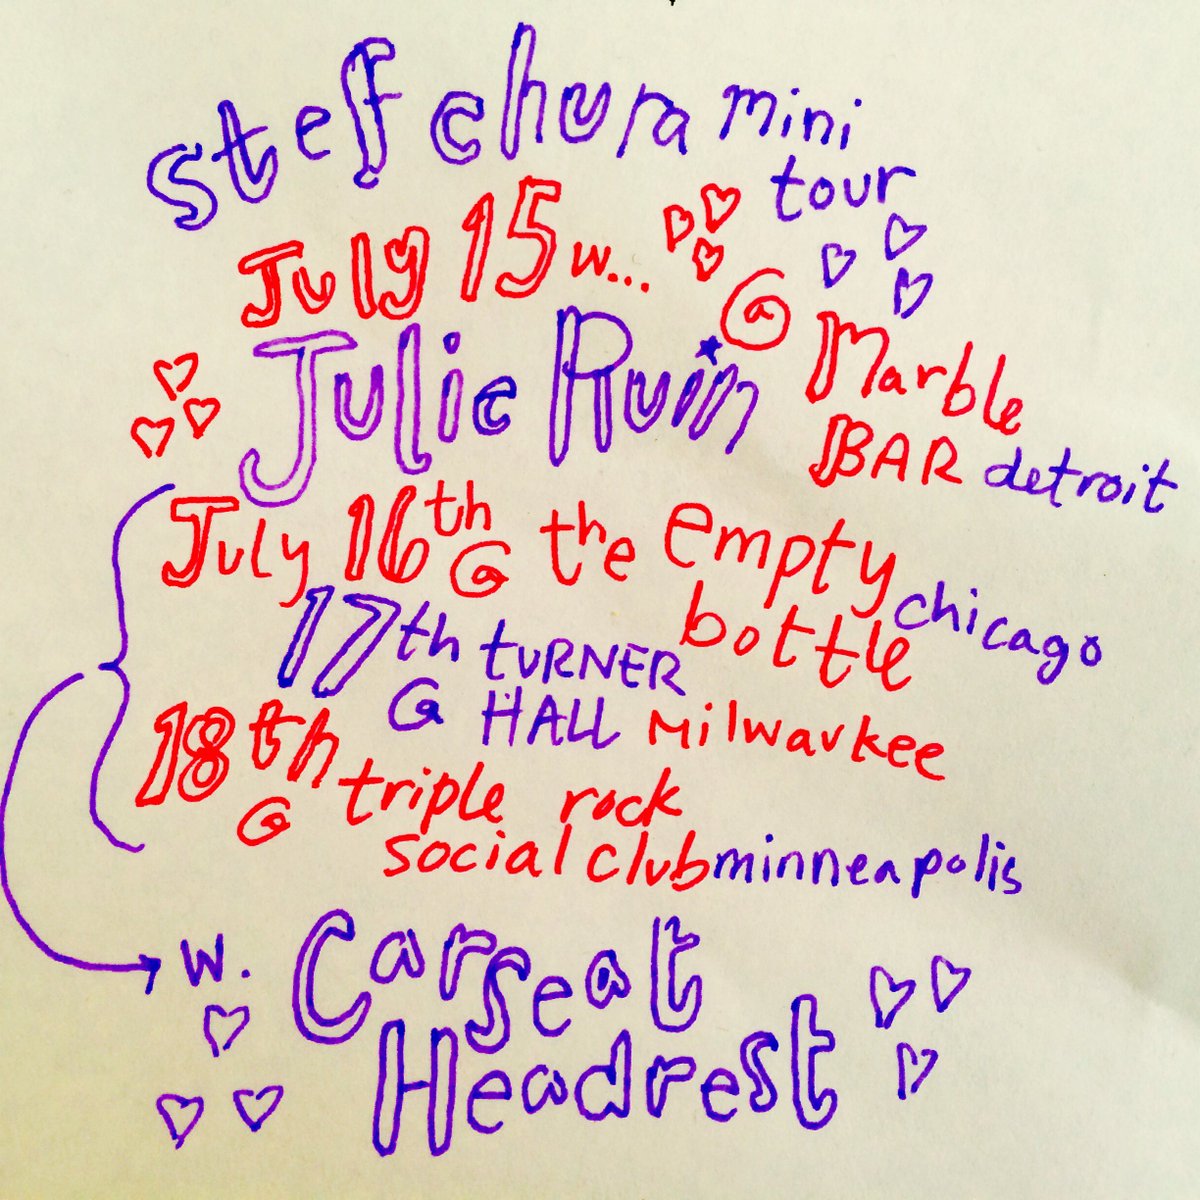 stef chura mini
tour
July 15 w...
@ Marble
BAR detroit
Julie Ruin
July 16th @ the empty
bottle chicago
17th TURNER
@ HALL Milwaukee
18th triple rock
@ social club minneapolis
w. Carseat
Headrest